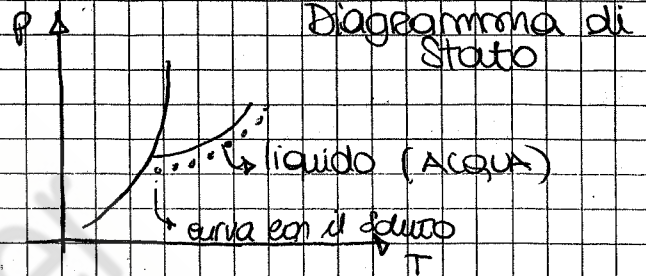 P
Diagramma di
Stato
liquido (ACQUA)
curva con il soluto
T